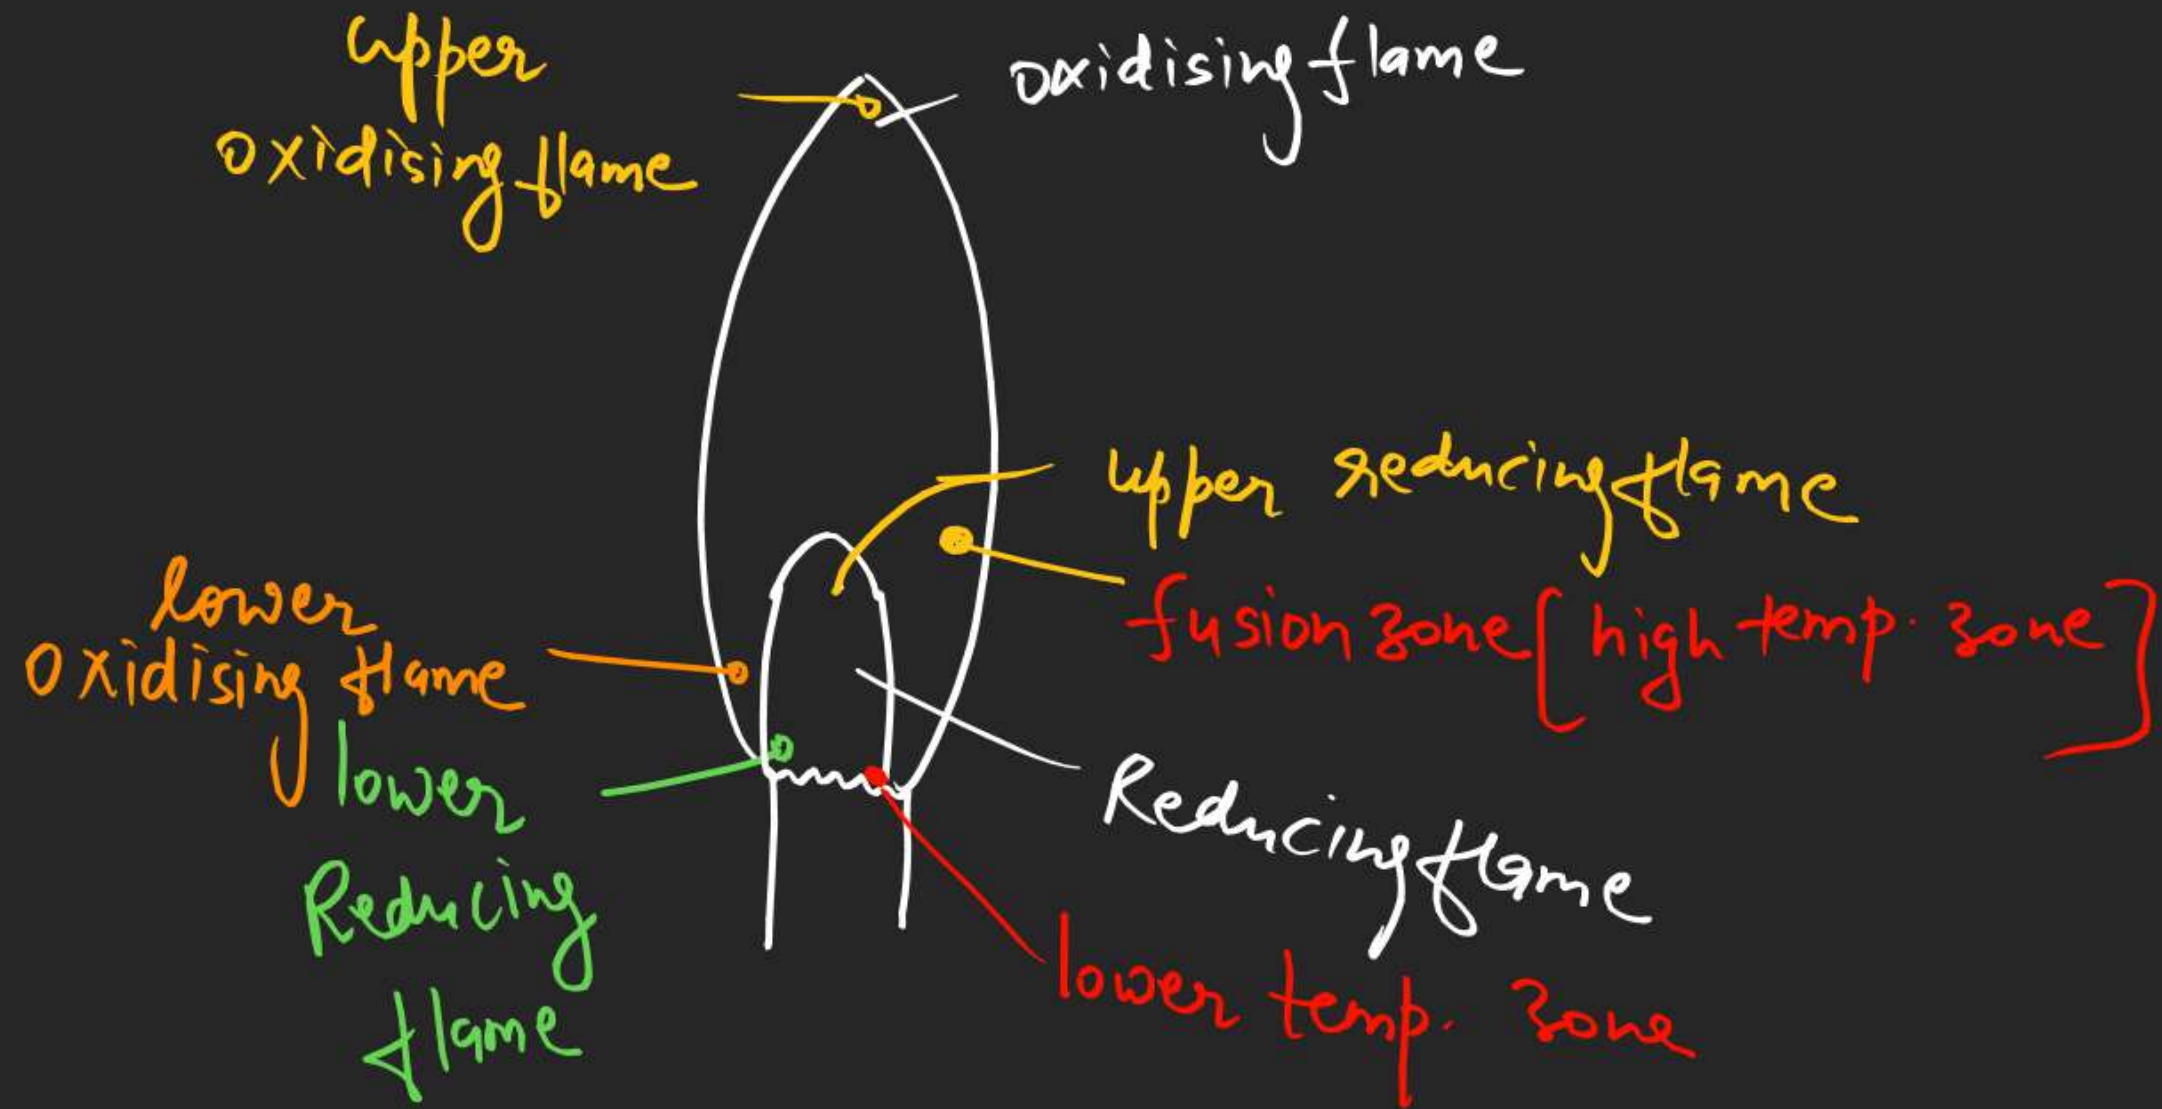 upper
oxidising flame
oxidising flame
upper reducing flame
fusion zone [high temp. zone]
lower
oxidising flame
lower
Reducing
flame
Reducing flame
lower temp. zone